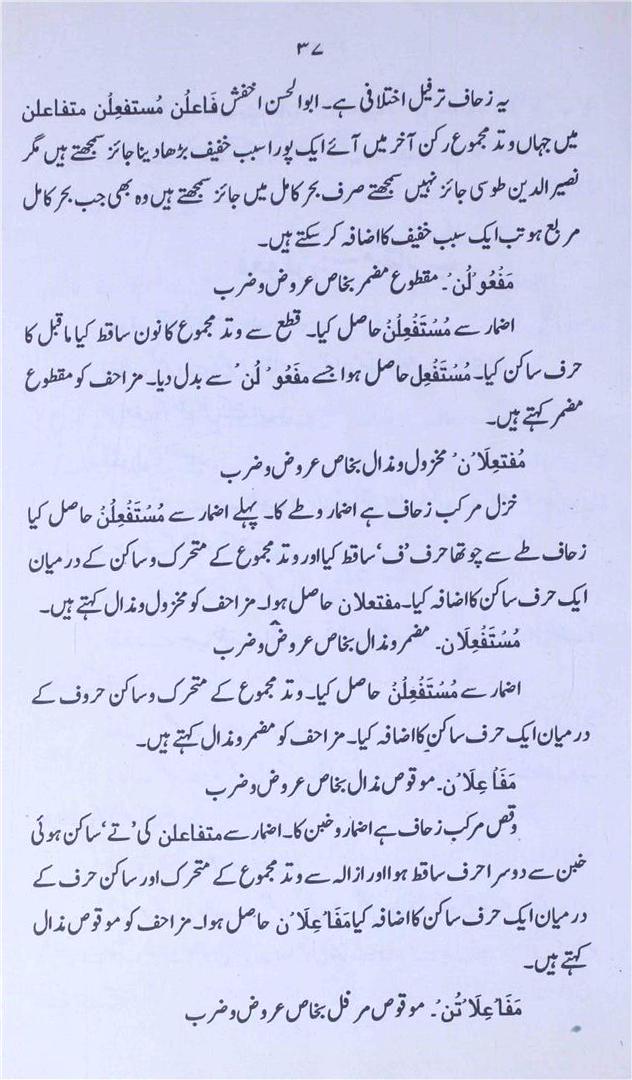 ۳۷
یہ زحاف ترفیل اختلافی ہے۔ ابوالحسن اخفش فَاعلُن مُستفعِلُن متفاعلن
میں جہاں وتد مجموع رکن آخر میں آئے ایک پورا سبب خفیف بڑھا دینا جائز سمجھتے ہیں مگر
نصیر الدین طوسی جائز نہیں سمجھتے صرف بحر کامل میں جائز سمجھتے ہیں وہ بھی جب بحر کامل
مربع ہو تب ایک سبب خفیف کا اضافہ کر سکتے ہیں۔
مَفْعُوْلُن۔ مقطوع مضمر بخاص عروض و ضرب
اضمار سے مُسْتَفْعِلُنْ حاصل کیا۔ قطع سے وتد مجموع کا نون ساقط کیا ماقبل کا
حرف ساکن کیا۔ مُسْتَفْعِل حاصل ہوا جسے مَفْعُوْلُنْ سے بدل دیا۔ مزاحف کو مقطوع
مضمر کہتے ہیں۔
مُفْتَعِلَانْ مخزول و مذال بخاص عروض و ضرب
خزل مرکب زحاف ہے اضمار و طے کا۔ پہلے اضمار سے مُسْتَفْعِلُنْ حاصل کیا
زحاف طے سے چوتھا حرف ’ف‘ ساقط کیا اور وتد مجموع کے متحرک و ساکن کے درمیان
ایک حرف ساکن کا اضافہ کیا۔ مفتعلان حاصل ہوا۔ مزاحف کو مخزول و مذال کہتے ہیں۔
مُسْتَفْعِلَان۔ مضمر و مذال بخاص عروض و ضرب
اضمار سے مُسْتَفْعِلُنْ حاصل کیا۔ وتد مجموع کے متحرک و ساکن حروف کے
درمیان ایک حرف ساکن کا اضافہ کیا۔ مزاحف کو مضمر و مذال کہتے ہیں۔
مَفَاْعِلَاْن۔ موقوص مذال بخاص عروض و ضرب
وقص مرکب زحاف ہے اضمار و خبن کا۔ اضمار سے متفاعلن کی ’تے‘ ساکن ہوئی
خبن سے دوسرا حرف ساقط ہوا اور ازالہ سے وتد مجموع کے متحرک اور ساکن حرف کے
درمیان ایک حرف ساکن کا اضافہ کیا مَفَاْعِلَاْن حاصل ہوا۔ مزاحف کو موقوص مذال
کہتے ہیں۔
مَفَاْعِلَاْتُنْ۔ موقوص مرفل بخاص عروض و ضرب